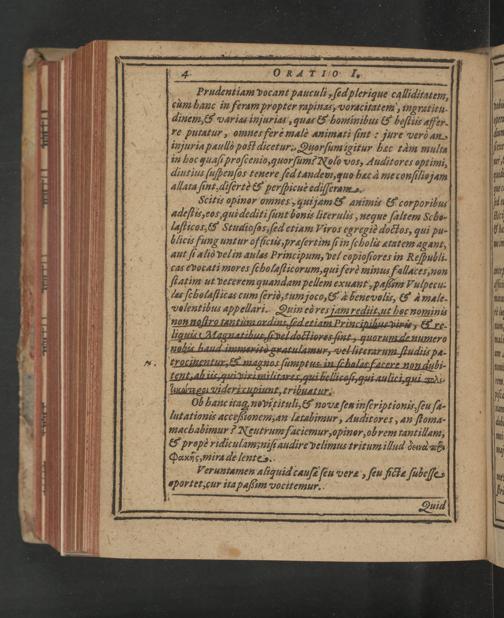 4 ORATIO I.
Prudentiam vocant pauculi, sed plerique calliditatem,
cùm hanc in feram propter rapinas, voracitatem, ingratitu-
dinem, & varias injurias, quas & hominibus & bestiis affer-
re putatur, omnes ferè malè animati sint: jure verò an
injuria paullò pòst dicetur. Quorsum igitur hæc tàm multa
in hoc quasi proscenio, quorsum? Nolo vos, Auditores optimi,
diutius suspensos tenere sed tandem, quo hæc à me consilio jam
allata sint, disertè & perspicuè edisseram.
Scitis opinor omnes, qui jam & animis & corporibus
adestis, eos, qui dediti sunt bonis literulis, neque saltem Scho-
lasticos, & Studiosos, sed etiam Viros egregiè doctos, qui pu-
blicis funguntur officiis, præsertim si in scholis ætatem agant,
aut si aliò vel in aulas Principum, vel copiosiores in Respubli-
cas evocati mores scholasticorum, qui ferè minus fallaces, non
statim ut veterem quandam pellem exuant, passim Vulpecu-
las scholasticas cum seriò, tum joco, & à benevolis, & à male-
volentibus appellari. Quin eò res jam rediit, ut hoc nominis
non nostro tantùm ordini, sed etiam Principibus viris, & re-
liquis Magnatibus, si vel doctiores sint, quorum de numero
nobis haud immeritò gratulamur, vel literarum studiis pa-
trocinentur, & magnos sumptus in scholas facere non dubi-
tent, ab iis, qui viri militares, qui bellicosi, qui aulici, qui
videri cupiunt, tribuatur.
Ob hanc itaq; novi tituli, & novæ seu inscriptionis, seu sa-
lutationis accessionem, an lætabimur, Auditores, an stoma-
machabimur? Neutrum faciemur, opinor, ob rem tantillam,
& propè ridiculam; nisi audire velimus tritum illud δεινὰ περὶ
Φακῆς, mira de lente.
Veruntamen aliquid causæ seu veræ, seu fictæ subesse
oportet, cur ita passim vocitemur.
Quid